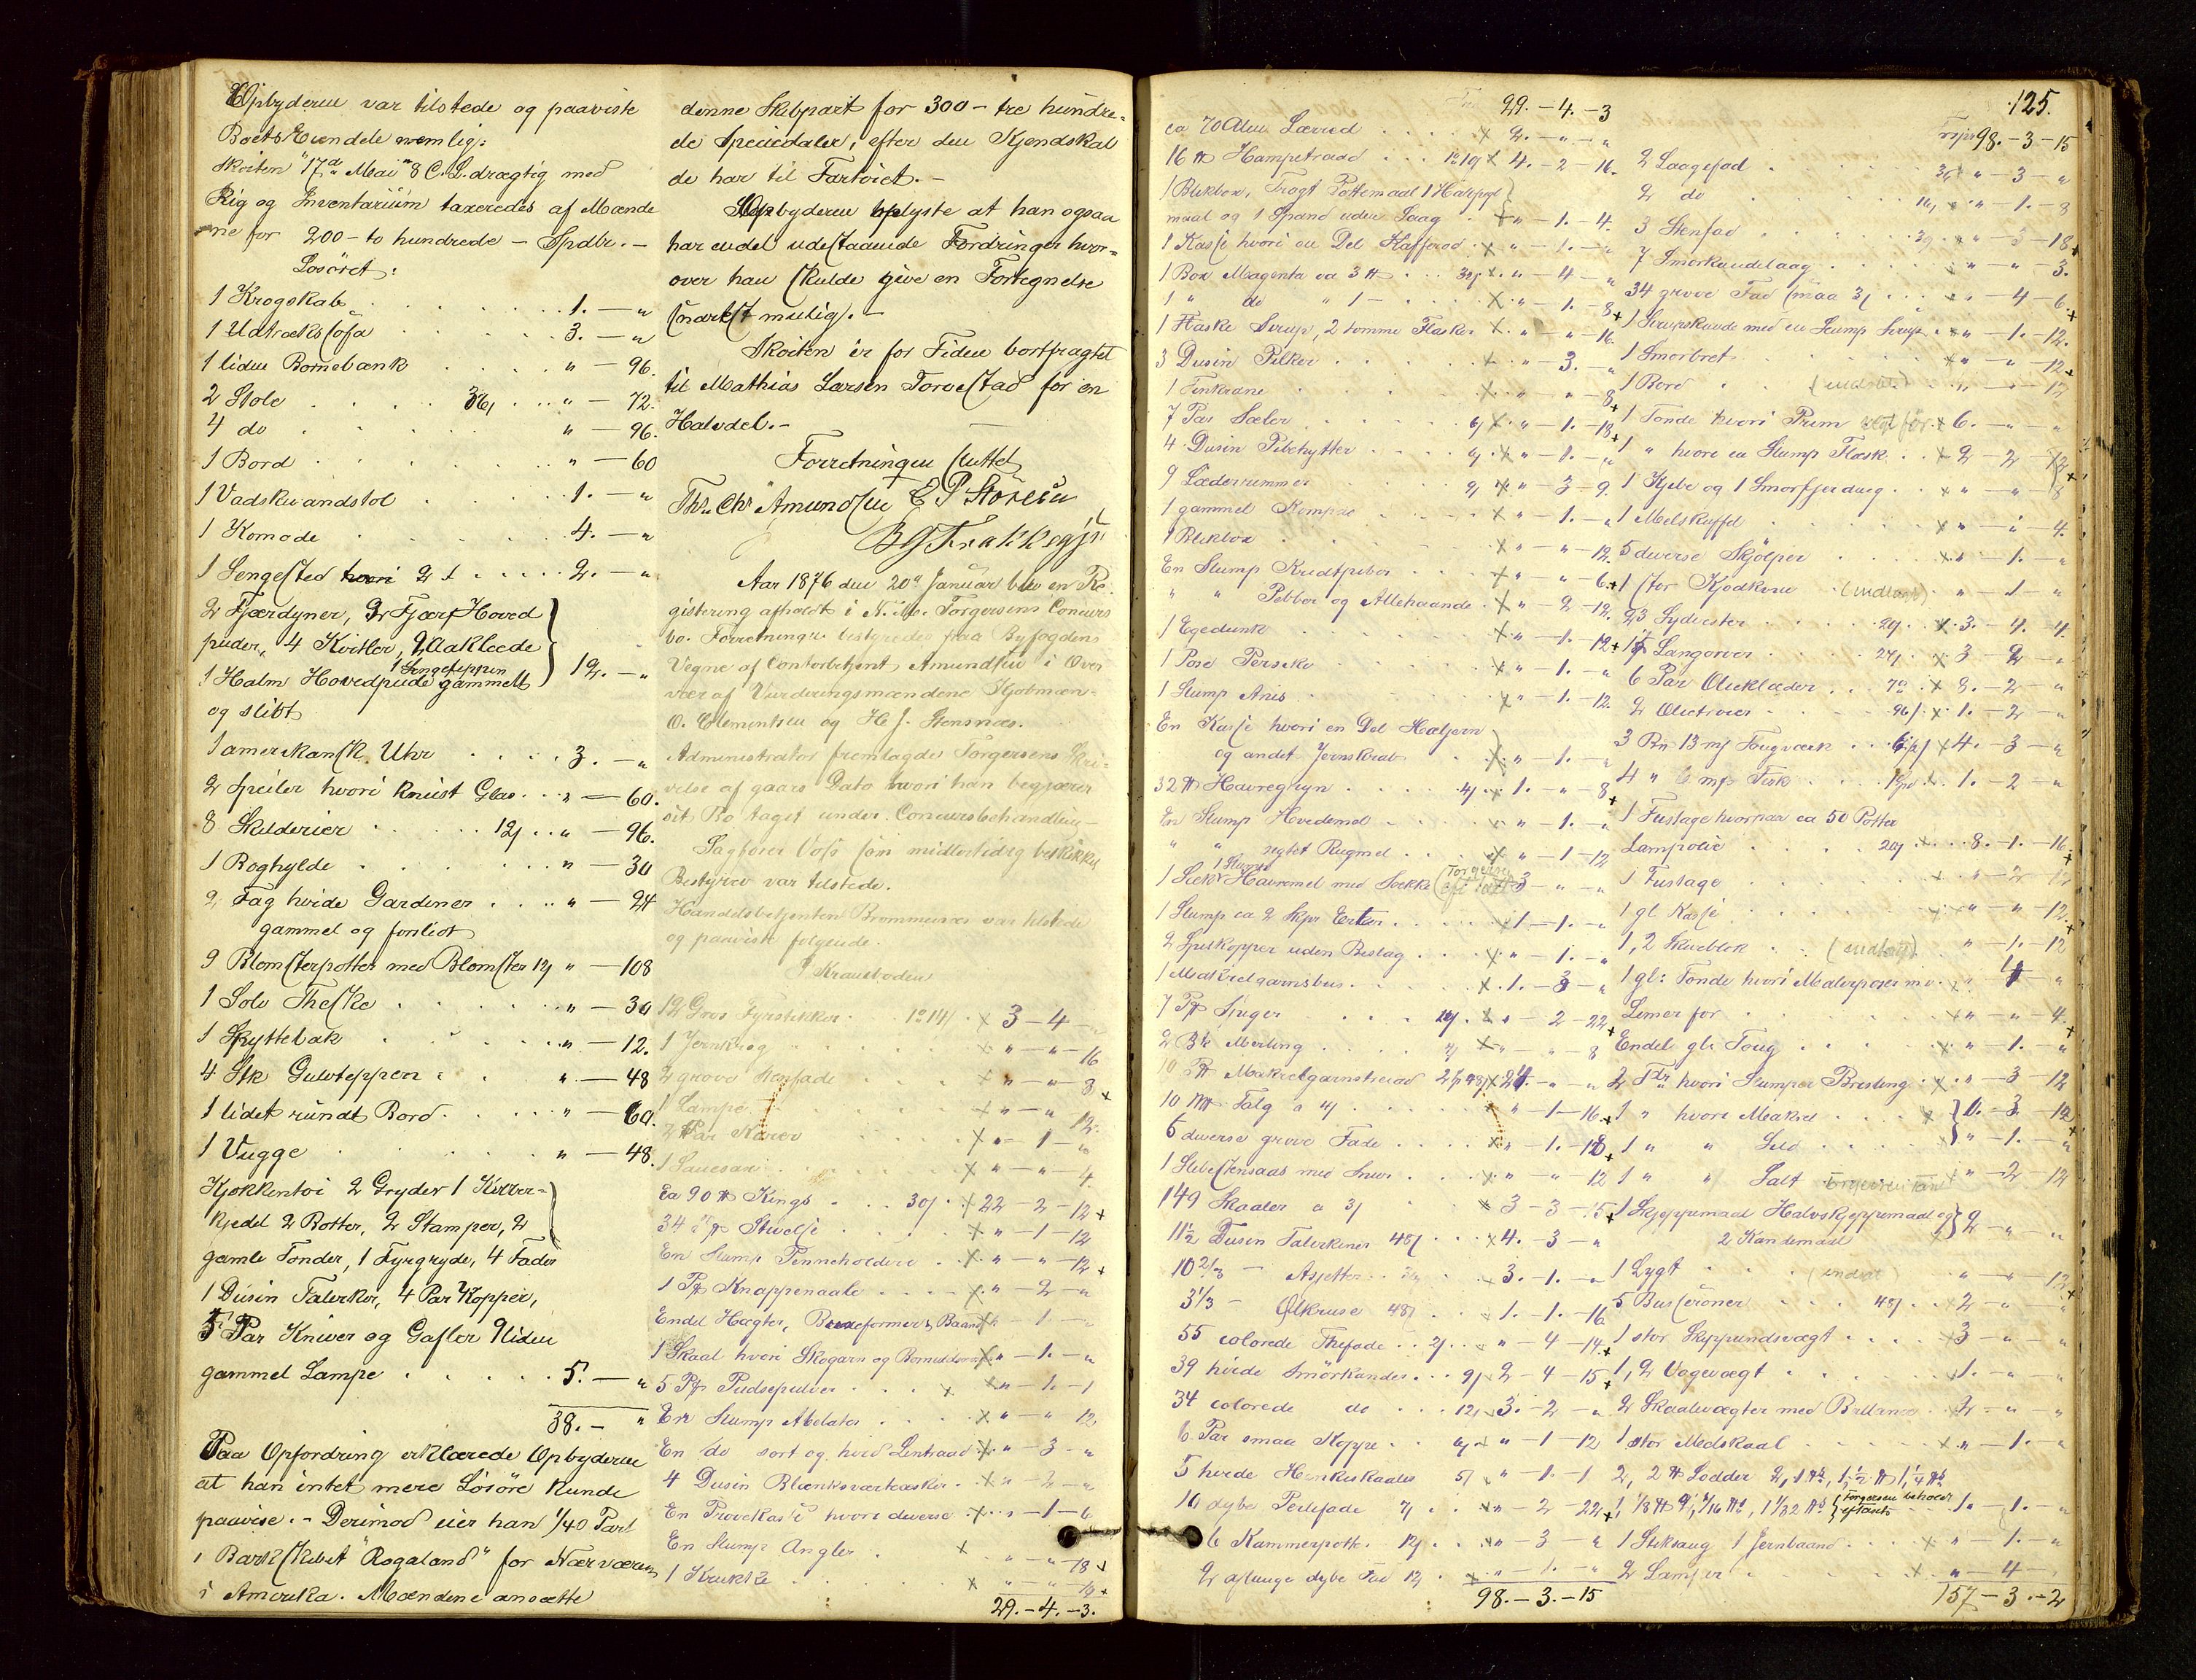 Opbyderen var tilstede og paaviste
Boets Eiendele nemlig:
Skoiten "17de Mai" 8 C. L. drægtig med
Rig og Inventarium taxeredes af Mænde
ne for 200 - to hundrede - Spdlr. -
Losöret:
1 Krogskab . . . 1. - "
1 Udtrækssofa . . . 3. - "
1 liden Bornebænk . . . " - 96.
2 Stole . . . 36/ . . " - 72.
4 do . . . " - 96.
1 Bord . . . " - 60
1 Vadskevandstol . . . 1. - "
1 Komode . . . 4. - "
1 Sengested hvori . . . 2. - "
2 Fjærdyner, 3 Fjær Hoved
puder, 4 Kvitler, 2 Aaklæde
1 Sengeteppen
1 Halm Hovedpude gammelt 12. - "
og slidt
1 amerikansk Uhr . . . 3. - "
2 Speiler hvori knust Glas . . " - 60.
8 Skilderier . . . 12/ . . " - 96.
1 Boghylde . . . " - 30
2 Fag hvide Gardiner . . . " - 24
gammel og forslidt
9 Blomsterpotter med Blomster 12/ " - 108
1 Solv Theske . . . " - 30
1 Spyttebak . . . " - 12.
4 Stk Gulvteppen . . . " - 48
1 lidet rundt Bord . . . " - 60.
1 Vugge . . . " - 48.
Kjokkentoi 2 Gryder 1 Kobber-
kjedel 2 Botter, 2 Stamper, 2
gamle Tonder, 1 Fyrgryde, 4 Fader
1 Dusin Talerker, 4 Par Kopper,
5 Par Kniver og Gafler 1 liden
gammel Lampe . . . 5. - "
38. - "
Paa Opfordring erklærede Opbyderen
at han intet mere Lösöre kunde
paavise. - Derimod eier han 1/40 Part
i Barkskibet "Rogaland" for Nærværen
i Amerika. Mændene ansætte
denne Skibspart for 300 - tre hundre-
de Speciedaler, efter den Kjendskab
de har til Fartoiet. -
Opbyderen oplyste at han ogsaa
har endel udestaaende Fordringer hvor-
over han skulde give en Fortegnelse
snarest mulig. -
Skoiten er for Tiden bortfragtet
til Mathias Larsen Torvestad for en
Halvdel. -
Forretningen sluttet
Thv. Chr Amundsen E P Störeen
B G Frakkagjr.
Aar 1876 den 20de Januar blev en Re-
gistering afholdt i N. M. Torgersens Concurs
bo. Forretningen bestyredes paa Byfogdens
Vegne af Contorbetjent Amundsen i Over
vær af Vurderingsmændene Kjobmæn-
O. Clementsen og H. J. Stensnæs.
Administrator fremlagde Torgersens Skri-
velse af gaars Dato hvori han begjærer
sit Bo taget under Concursbehandlin-
Sagforer Voss som midlertidig beskikket
Bestyrer var tilstede.
Handelsbetjenten Brommenæs var tilstede
og paaviste folgende.
I Kramboden
12 Gros Fyrstikker . . 1o 14/ . x 3 - 4 - "
1 Jernkrog . . . x " - " - 16
2 grove Stenfade . . . x " - " - 8
1 Lampe . . . x " - " 12.
2 Par Karer . . . x " - 1 - "
1 . . . x " - " - 4
Ca 90 ℔ Kings . . . 30/ . x 22 - 2 - 12
34 ℔ Stivelse . . . x " - 1 - 12
En Slump Penneholdere . . x . " - " - 12
1 ℔ Knappenaale . . . x . " - 2 - "
Endel Hægter, Baand x " - 1 - "
1 Skaal hvori Skogarn og x " - 1. - "
5 ℔ Pudsepulver . . . x " - 1 - 1
En Slump . . . x " - " 12
En do sort og hvid Lintraad x " - 3 - "
4 Dusin Blanksværtæsker . x " - 2 - "
En Provekasse hvori diverse . x . . " - 1 - 6
En Slump Angler . x . . " - " - 18
1 Krukke . . . x " - " -
29. - 4. - 3.
29. - 4. - 3
ca 70 Alen Lærred . . . x 2. - " - "
16 ℔ Hampetraad . . . 1o 10/ x 4. - 2 - 16.
1 Blikbox, Tragt Pottemaal 1 Halvpot
maal og 1 Spand uden Laag . x " - 1. - 4.
1 Kasse hvori en Del Kafferod . x " - 1. - "
1 Box Magenta ca 3 ℔ . . 32/ x . " - 4 - "
1 " do " 1 - . . . x . " - 1. - 8
1 Flaske Sirup, 2 tomme Flasker x . " - " - 16
3 Dusin Pilker . . . x . " - 3. - "
1 Tinkrane . . . x . " - " - 8
7 Par Sæler . . . 6/ x . " - 1. - 18
4 Dusin Pibehytter . . . 6/ . x " - 1. - "
9 Læderremmer . . . 9/ x " - 3 - 9.
1 gammel Kompas . . . x " - 1. - "
1 Blikbox . . . x " - " - 12.
En Slump Kridtpiber . . . x " - " - 6.
" " Pebber og Allehaande . x " - 2 - 12.
1 Egedunk . . . x " - 1. - 12
1 Pose Persiko . . . x " - 1. - "
1 Slump Anis . . . x " - 1. - 12.
En Kasse hvori en Del Hæljern
og andet Jernskrab . . x " - 1. - "
32 ℔ Havregryn . . . 4/ . x 1. - " - 8
En Slump Hvedemel . . . x " - 1. - "
" " sigtet Rugmel . . . x " - 1 - 12
1 Slump
1 Sæk Havremel med Sække (Torgersen 3 - " - "
1 Slump ca 2 Skpr Erter . . . x 1 - 1. - "
2 Spiskopper uden Beslag . . . x " - 1. - "
1 Makrelgarnsbus . . . x . 1. - 3 - "
7 ℔ Spiger . . . 10/ . x " - 2 - 22
2 Bk Merling . . . 4/ x " - " - 8
10 ℔ Makrelgarnstraad 2 48/ x 24. - " - "
10 ℔ Talg a 4/ . . . x " - 1 - 16
6 diverse grove Fade . . . x " - 1. - 12
1 Slibestensaas med Sveiv . . x " - " - 12
149 Skaaler a 3/ x 3 - 3 - 15
11½ Dusin Talerkener 48/ . . x 4. - 3 - "
10 2/3 - Asjetter . . 36/ . . x 3. - 1. - "
3 1/3 - Olkruse 48/ . . x 1. - 1. - 16
55 colorede Thefade . . 2/ . . x " - 4 - 14.
39 hvide Smörkander . . . 9/ x 2 - 4 - 15
34 colorede do . . . 12/ x 3. - 2 - "
6 Par smaa Koppe . . 6/ x " - 1 - 12
5 hvide Henkeskaaler 5/ x " - 1. - 1
10 dybe Perlefade 7/ . x " - 2 - 22
6 Kammerpotte . 12/ . . x " - 3 - "
2 aflange dybe Fad 12/ . x . . " - 1. - "
98. - 3. - 15
125.
98. - 3 - 15
2 Laagefad . . . 36/ " - 3 - "
2 do . . . 16/ x " - 1. - 8
3 Stenfad . . . 30/ . x " - 3 - 18
7 Smorkandelaag . . . " - " - 3.
34 grove Fad smaa 3/ . . . " - 4 - 6.
1 Sirupskande med en Slump Sirup . x " - 1. - 12.
1 Smorbret . . . x " - " - 12
1 Bord . . (indsat) . . " - " - 12
1 Tonde hvori Prim x 6. - " - "
1 " hvori en Slump Flæsk . . x 2 - 2 - 12
1 Kjebe og 1 Smorfjerding . . x " - " - 8
1 Melskuffel . . . x " - " - 4.
5 diverse Skjölper . . . x " - 1. - "
1 stor Kjodkrue . . " - 1 - "
23 Sydvester . . . 20/ . x . 3. - 4. 4.
15 Langorver . . . 24/ . x 3 - 2 - "
6 Par Olieklæder . . . 7o . x 8. - 2 - "
2 Olietroier . . . 96/ . x . 1. - 2 - "
3 Bn 13 m/ Tougværk . . x 4. - 3 - "
4 " 6 m/ Fisk . . . x . 1. - 2 - "
1 Fustage hvorpaa ca 50 Potter
Lampolie . . . 20/ x . . 8. - 1. - 16
1 Fustage . . . x " - 2 - 12
1 gl Kasse . . . x " - " - 12.
1, 2 Skiveblok . . . " - 1. - 12
1 gl: Tonde hvori Malerposer m.v. x " 4 - "
Limer for . . . x " - " - 4.
Endel gl. Toug . . . x " - 1. - "
2 Tdr hvori Slumper Brisling . x . " - 3 - 12
1 " hvori Makrel . . . x 0. - 3. - 12
1 " " Sild . . . x " - 1. "
1 " " Salt " - 2 - 12
1 Skjeppemaal Halvskjeppemaal og 2 - " - "
2 Kandemaal
1 Lygt . . . (indsat) " - " - 12
5 Busseroner . . . 48/ . . x 2 - " "
1 stor Skippundsvægt . . . 3 - " - "
1, 2 Vogevægt . . . x 1. - " - "
2 Skaalvægter med Ballance . x 2 - " - "
1 stor Medskaal . . . x . " - 1. - "
2, 2 ℔ Lodder 2, 1 ℔, 1, ½ ℔ 1, ¼ ℔
1, 1/8 ℔ 1, 1/16 ℔, 1 1/32 ℔ (Torgersen beholdt 1. - 1. - "
1 Stiksaug 1 Jernbaand . . . x " - 1. - "
2 Lamper . . . x . " - 4 - "
157 - 3. - 2